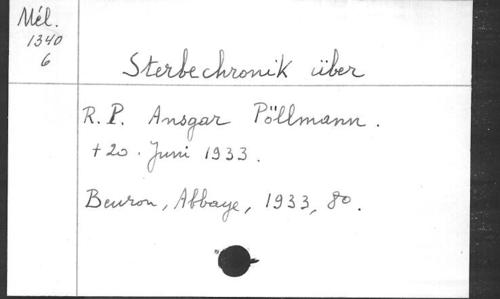 Mél.
1340
6
Sterbechronik über
R. P. Ansgar Pöllmann.
+ 20. Juni 1933.
Beuron, Abbaye, 1933, 8o.